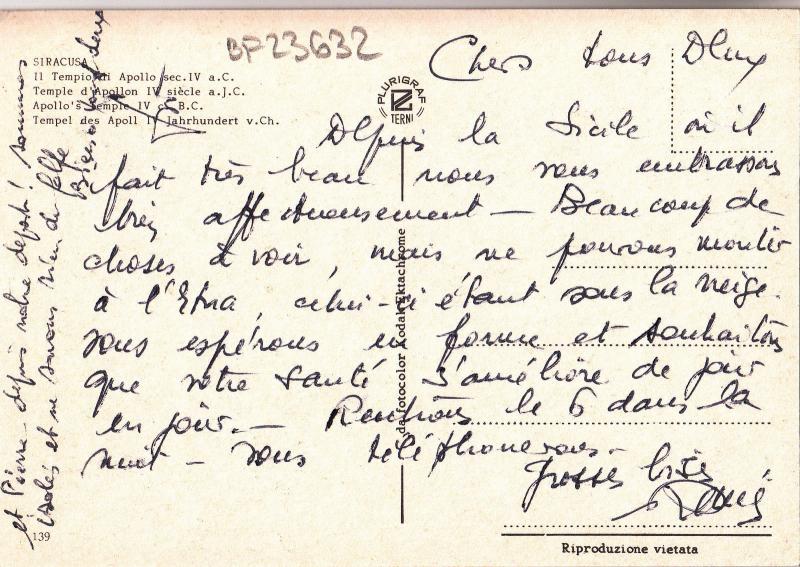 BF23632
SIRACUSA
Il Tempio di Apollo sec. IV a.C.
Temple d'Apollon IV siècle a.J.C.
Apollo's Temple IV c. B.C.
Tempel des Apoll IV Jahrhundert v.Ch.
PLURIGRAF
TERNI
Chers tous Deux
Depuis la Sicile où il
fait très beau nous vous embrassons
très affectueusement — Beaucoup de
choses à voir, mais ne pouvons monter
à l'Etna, celui-ci étant sous la neige.
vous espérons en forme et souhaitons
que votre santé s'améliore de jour
en jour. — Rentrons le 6 dans la
nuit — vous téléphonerons.
Grosses bises
et Pierre - depuis notre départ! sommes
isolés et ne savons rien de
da fotocolor Kodak Ektachrome
139
Riproduzione vietata